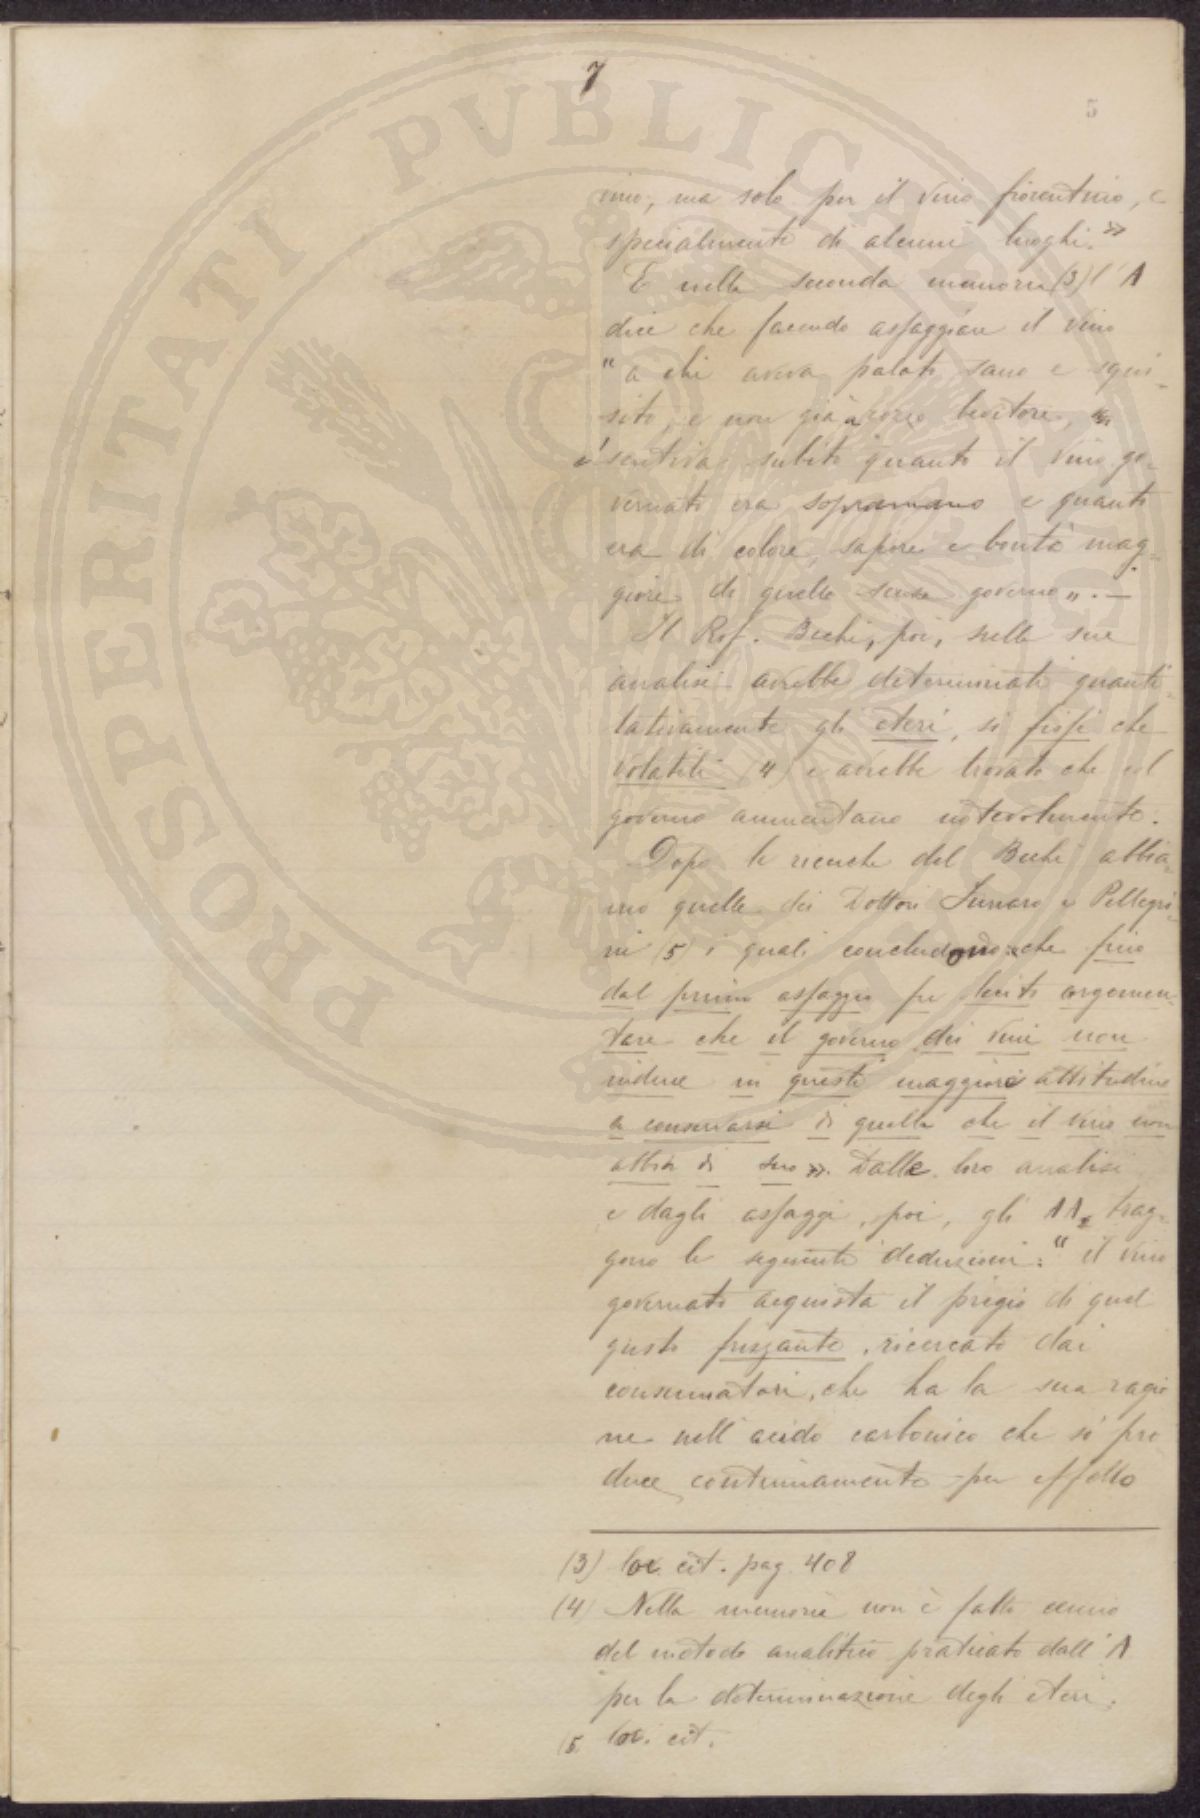 7
5
nio, ma solo per il vino fiorentino, e
specialmente di alcuni luoghi."
E nella seconda memoria (3) l'A
dice che facendo assaggiare il vino
"a chi aveva palato sano e squi-
sito, e non già a bevitore,
sentiva subito quanto il vino go-
vernato era sopramano e quanto
era di colore, sapore e bontà mag-
giore di quello senza governo„. —
Il Prof. Bechi, poi, nelle sue
analisi avrebbe determinati quanti-
tativamente gli eteri, sì fissi che
volatili (4) e avrebbe trovato che col
governo aumentano notevolmente.
Dopo le ricerche del Bechi abbia-
mo quelle dei Dottori Sunaro e Pellegri-
ni (5) i quali concludono che fino
dal primo assaggio fu lecito argomen-
tare che il governo dei vini non
induce in questi maggiore attitudine
a conservarsi di quella che il vino non
abbia di suo ». Dalle loro analisi
e dagli assaggi, poi, gli AA. trag-
gono le seguenti deduzioni: "il vino
governato acquista il pregio di quel
gusto frizzante, ricercato dai
consumatori, che ha la sua ragio
ne nell'acido carbonico che si pro
duce continuamente per effetto
(3) loc. cit. pag. 408
(4) Nella memoria non è fatto cenno
del metodo analitico praticato dall'A
per la determinazione degli eteri.
(5. loc. cit.
PVBLICAE
PROSPERITATI